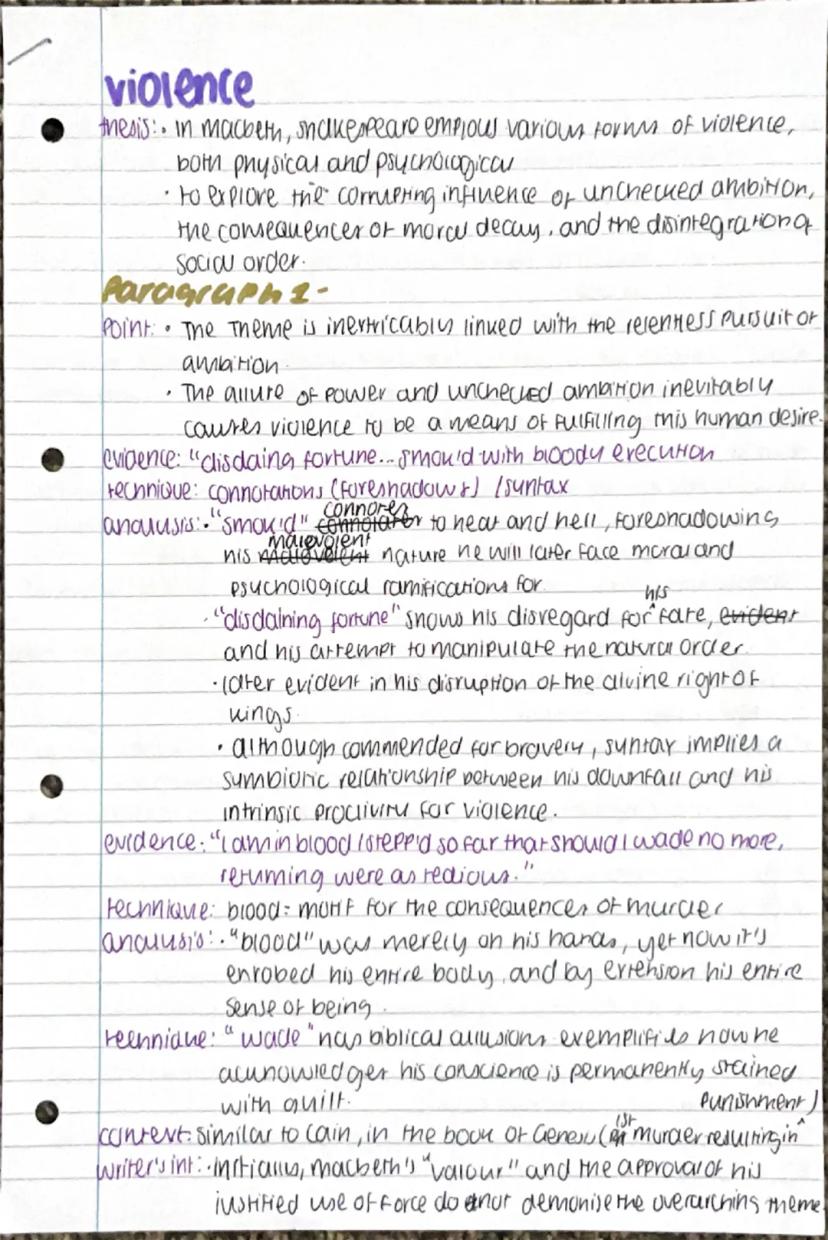 violence
thesis: • in macbeth, shakespeare employs various forms of violence,
both physical and psychological
• to explore the corrupting influence of unchecked ambition,
the consequences of moral decay, and the disintegration of
social order.
Paragraph 1-
Point: • The Theme is inextricably linked with the relentless pursuit of
ambition.
• The allure of power and unchecked ambition inevitably
causes violence to be a means of fulfilling this human desire.
evidence: "disdaing fortune... smok'd with bloody execution
technique: connotations (foreshadows) / syntax
connotes
analysis: • "smok'd" connotates to heat and hell, foreshadowing
malevolent
his nature he will later face moral and
psychological ramifications for.
his
• "disdaining fortune" shows his disregard for ^ fate, evident
and his attempt to manipulate the natural order.
• later evident in his disruption of the divine right of
kings.
• although commended for bravery, syntax implies a
symbiotic relationship between his downfall and his
intrinsic proclivity for violence.
evidence: "i am in blood / stepp'd so far that should I wade no more,
returning were as tedious."
technique: blood = motif for the consequences of murder
analysis: • "blood" was merely on his hands, yet now it's
enrobed his entire body, and by extension his entire
sense of being.
technique: "wade" has biblical allusions exemplifies how he
acknowledges his conscience is permanently stained
with guilt.
punishment)
context: similar to Cain, in the book of Genesis (1st murder resulting in ^
writer's int: • initially, macbeth's "valour" and the approval of his
justified use of force do not demonise the overarching theme.